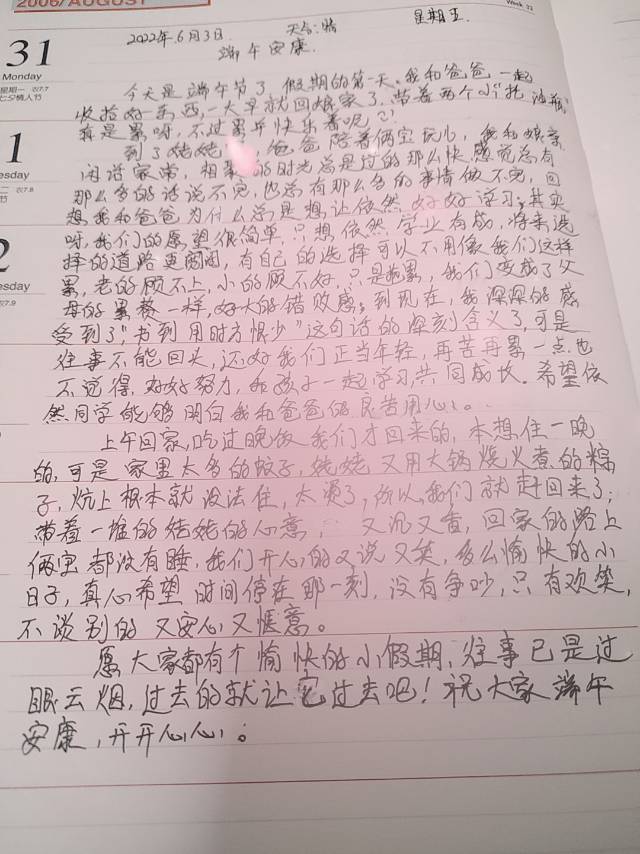 2006/AUGUST
Week 32
31
Monday
星期一 农7.7
七夕情人节
1
sday
农7.8
2
esday
农7.9
2022年.6月3日. 天气:晴 星期五
端午安康.
今天是端午节了,假期的第一天。我和爸爸一起
收拾好东西,一大早就回娘家了,带着两个小"拖油瓶"
真是累呀,不过累并快乐着呢?
到了姥姥 爸爸陪着俩宝玩儿,我和娘亲
闲话家常,相聚的时光总是过的那么快,感觉总有
那么多的话说不完,也总有那么多的事情做不完,回
想我和爸爸为什么总是想让依然好好学习,其实
呀,我们的愿望很简单,只想依然学业有成,将来选
择的道路更宽阔,有自己的选择可以不用像我们这样
累,老的顾不上,小的顾不好,只是挑累,我们变成了父
母的累赘一样,好大的错败感。到现在,我深深的感
受到了"书到用时方恨少"这句话的深刻含义了,可是
往事不能回头,还好我们正当年轻,再苦再累一点也
不觉得,好好努力,和孩子一起学习,共同成长。希望依
然同学能够明白我和爸爸的良苦用心。
上午回家,吃过晚饭我们才回来的,本想住一晚
的,可是家里太多的蚊子,姥姥又用大锅烧火煮的粽
子,炕上根本就没法住,太烫了,所以,我们就赶回来了;
带着一堆的姥姥的心意, 又沉又香,回家的路上
俩宝都没有睡,我们开心的又说又笑,多么愉快的小
日子,真心希望时间停在那一刻,没有争吵,只有欢笑,
不谈别的又安心又惬意。
愿大家都有个愉快的小假期,往事已是过
眼云烟,过去的就让它过去吧!祝大家端午
安康,开开心心。